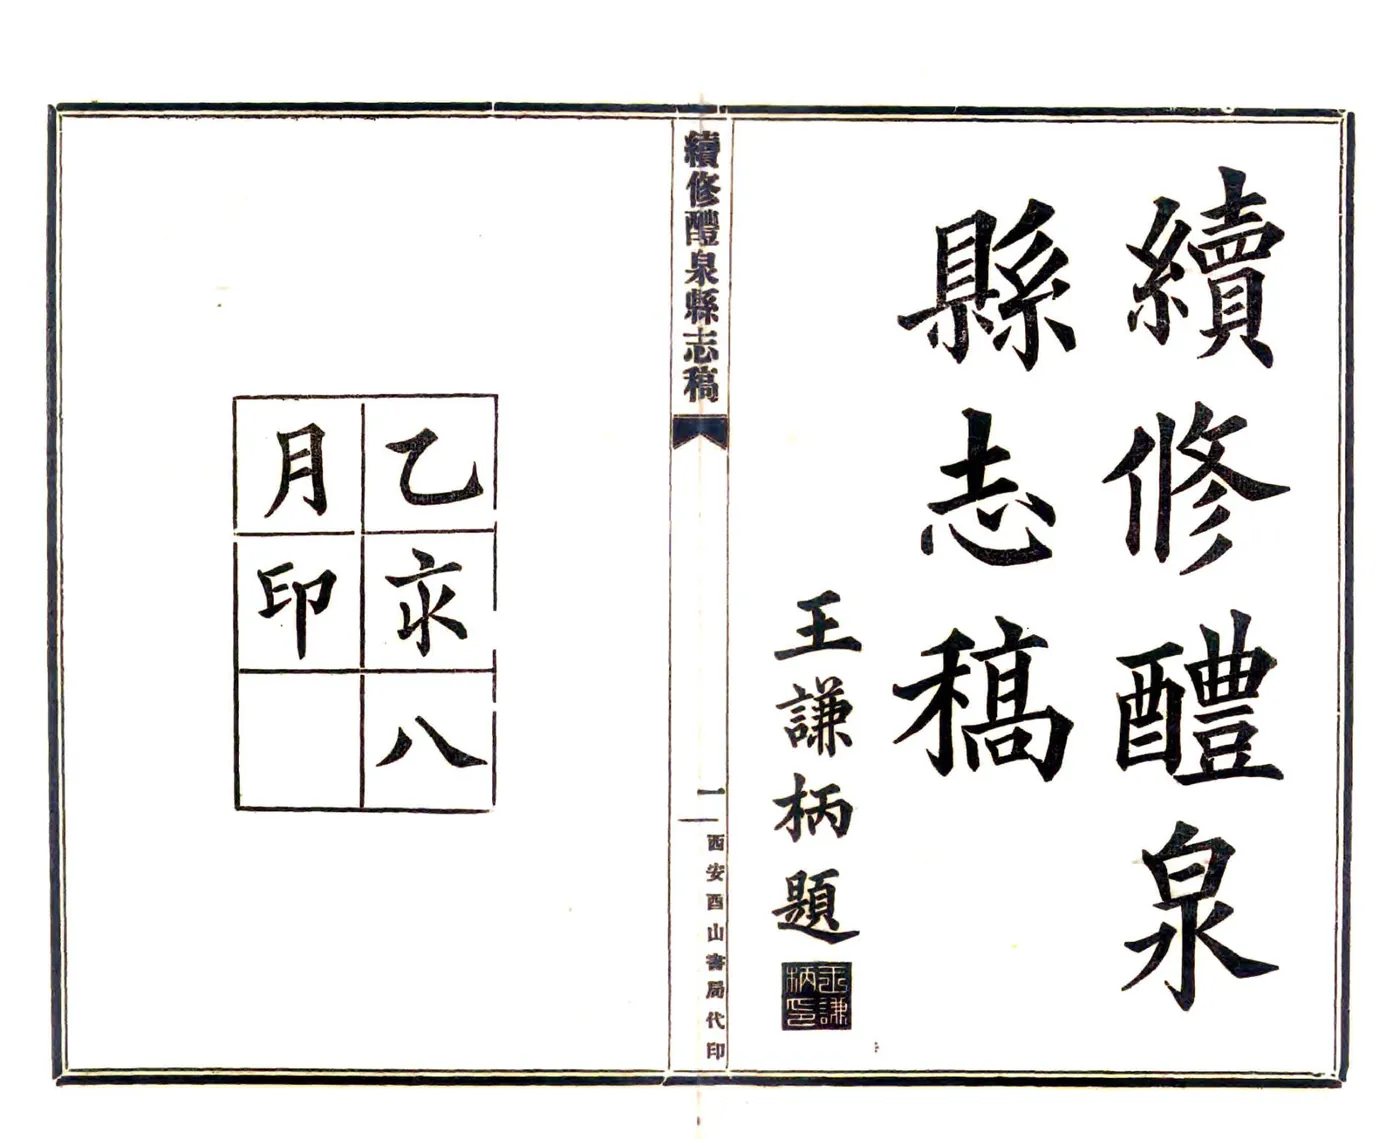 續修醴泉
縣志稿
王謙柄題
王謙柄印
續修醴泉縣志稿
一
西安酉山書局代印
乙亥八
月印